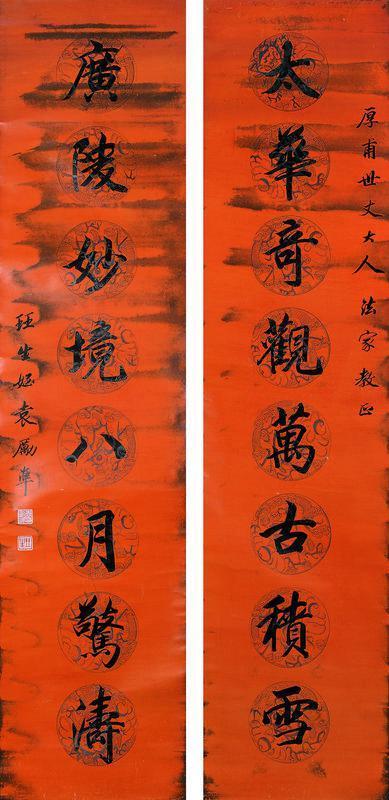 厚甫世丈大人 法家教正
太華奇觀萬古積雪
廣陵妙境八月驚濤
珏生姪袁勵準